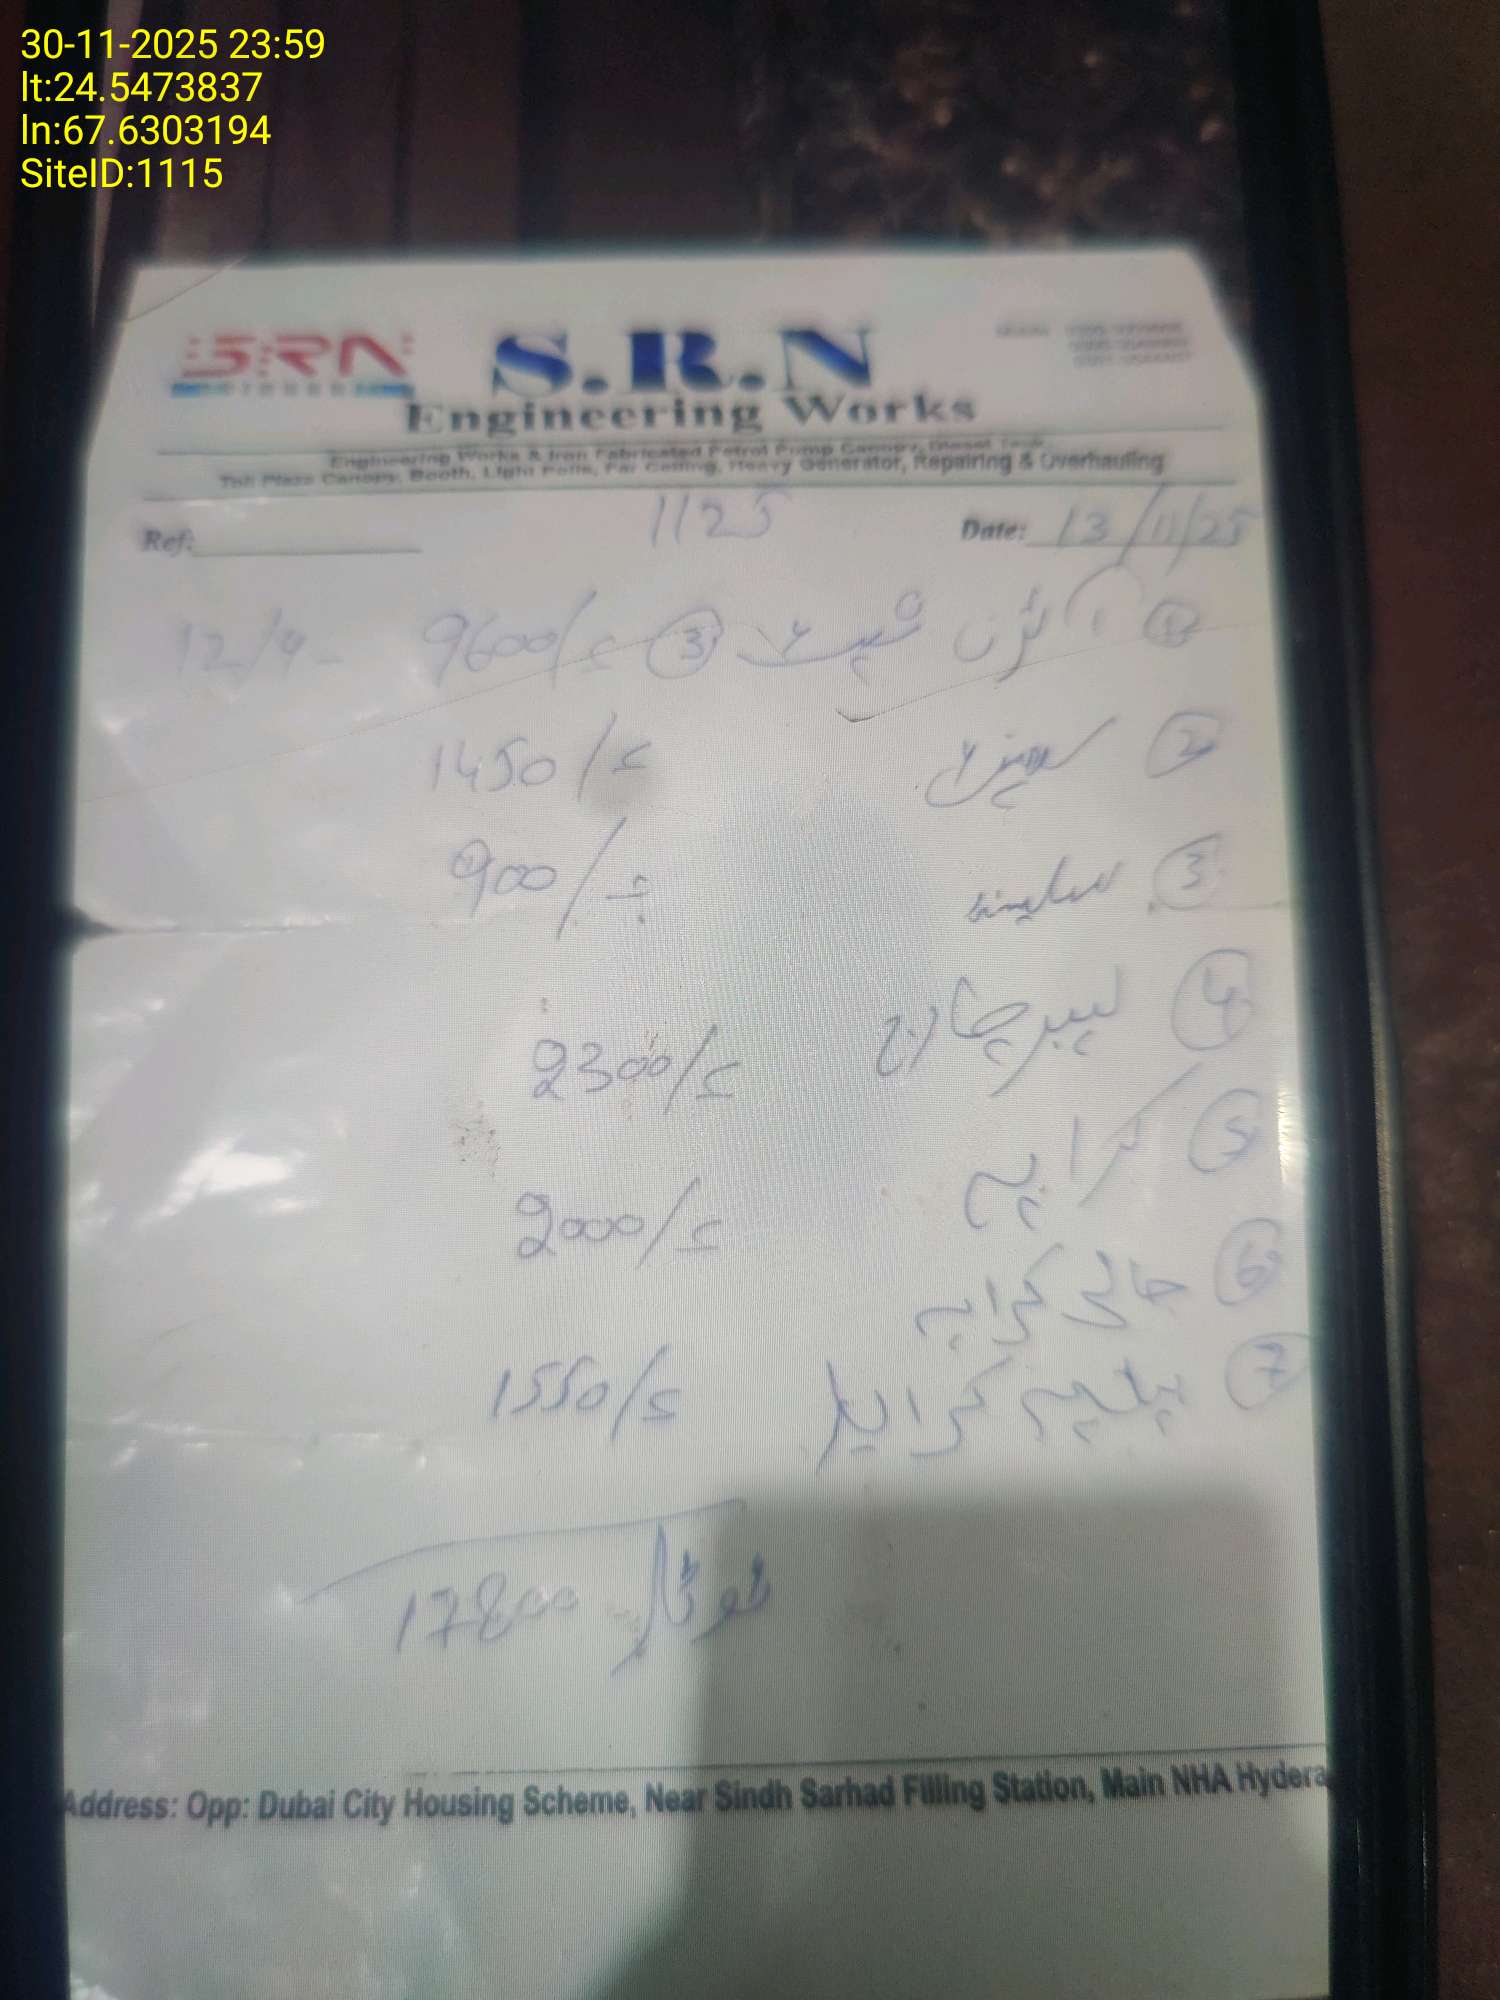 30-11-2025 23:59
lt:24.5473837
ln:67.6303194
SiteID:1115
SRN
S.R.N
Engineering Works
Engineering Works & Iron Fabricated Petrol Pump Canopy, Diesel Tank
Toll Plaza Canopy, Booth, Light Polls, Far Celling, Heavy Generator, Repairing & Overhauling
1125
Ref: Date: 13/11/25
① آئرن شیٹ ③ 9600/=
② 1450/=
③ 900/=
④ لیبر چارج 2300/=
⑤ کرایہ 2000/=
⑥ کرایہ
⑦ 1550/=
ٹوٹل 17800
Address: Opp: Dubai City Housing Scheme, Near Sindh Sarhad Filling Station, Main NHA Hydera